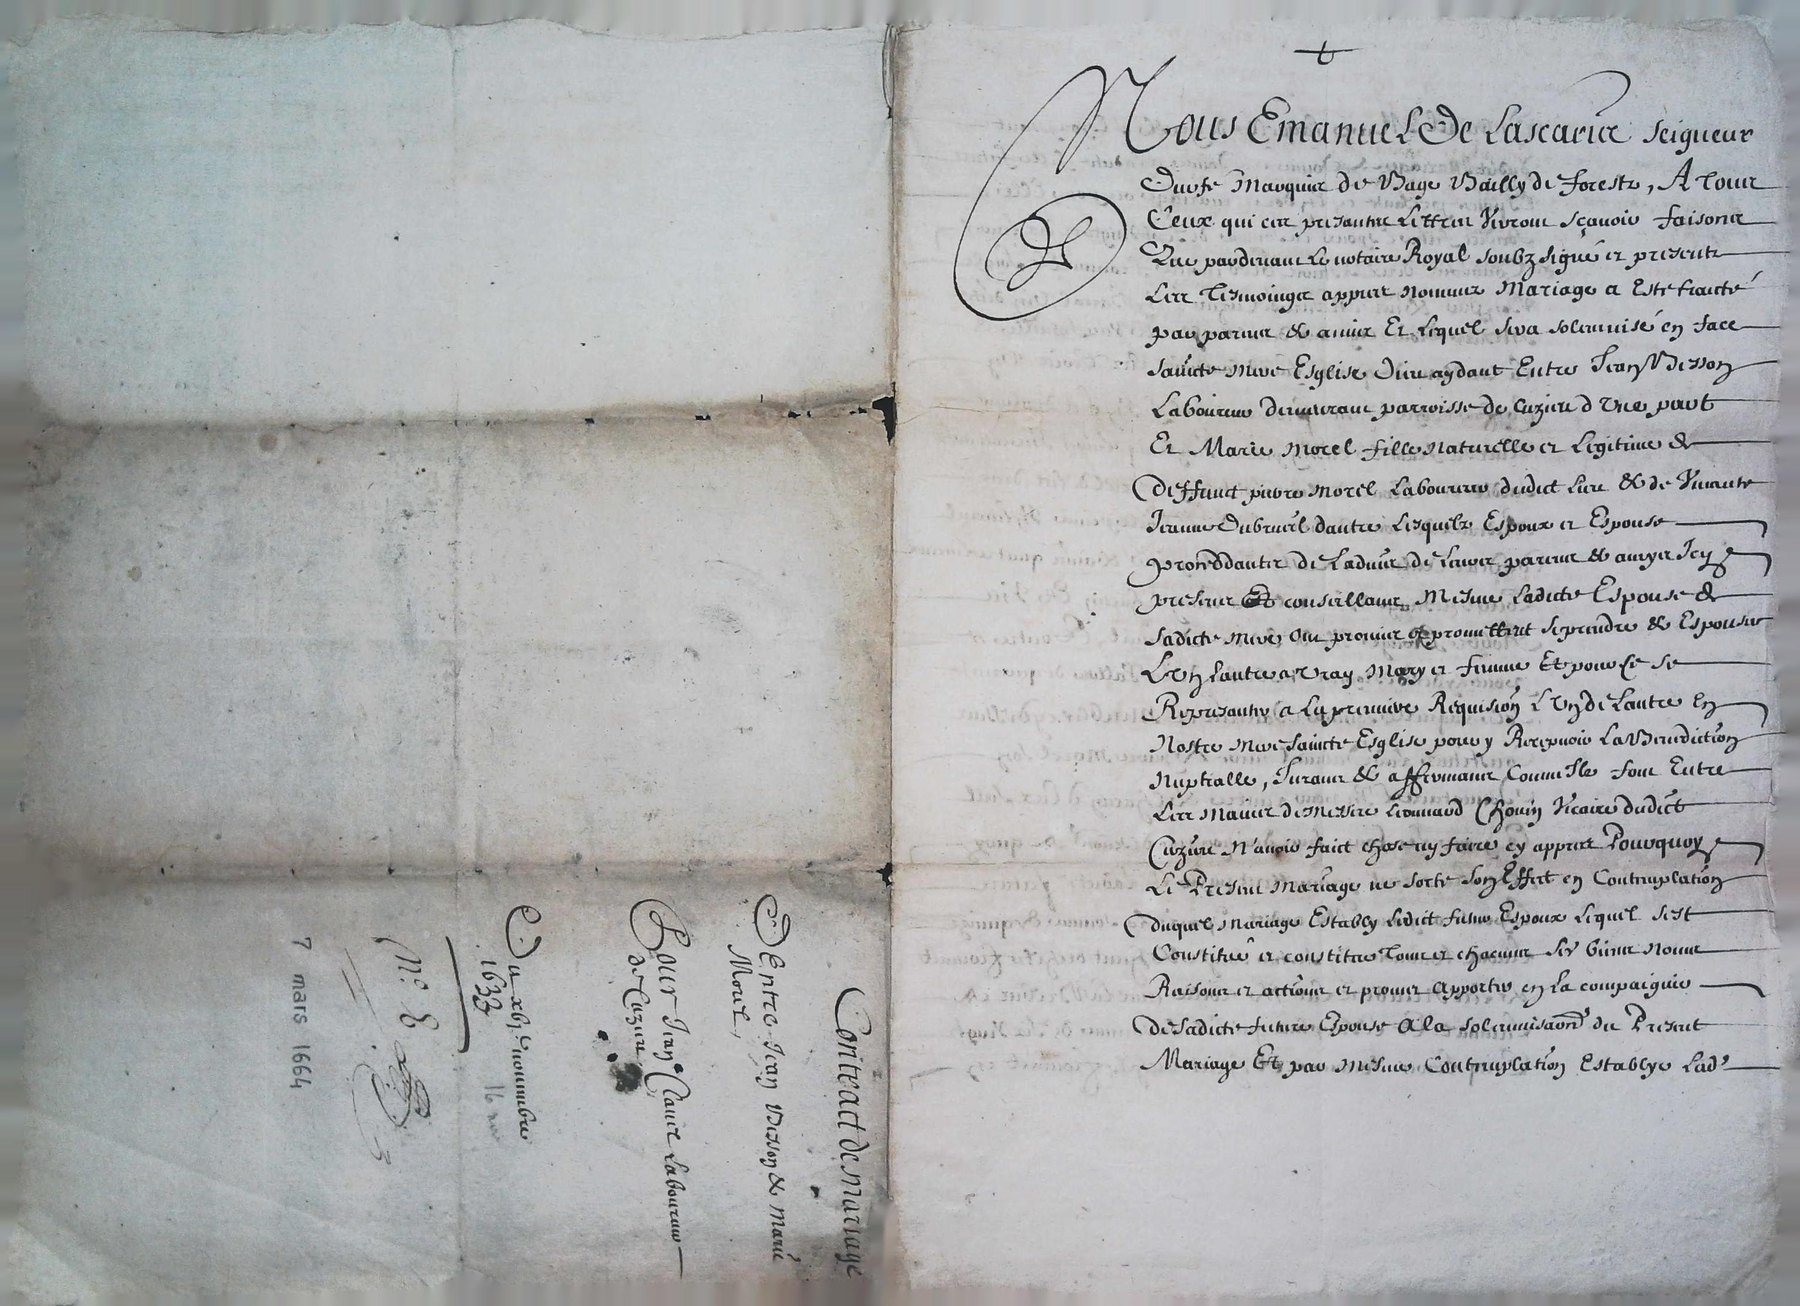 Nous Emanuel De Lascaris seigneur
Durfe Marquis de Bage Bailly de forestz, A tous
Ceux qui ces presantes Lettres Verront sçavoir faisons
Que pardevant Le notaire Royal soubz signé et presentz
Les tesmoingtz appres nommez Mariage a Esté traicté
par parens & amis Et Lequel sera solemnisé en face
saincte Mere Esglise Dieu aydant Entre Jean Besson
Laboureur demeurant parroisse de Cuzieu d Une part
Et Marie Morel fille Naturelle et Legitime &
Deffunct pierre Morel Laboureur dudict Lieu & de Vivante
Jeanne Dubrueil dautre Lesquelz Espoux et Espouse
proceddantz de Ladvis de Leurs parens & amys Icy
presens Et conseillans Mesme Ladicte Espouse de
sadicte Mere Ont promis et promettent se prendre & Espouser
LUn Lautre a Vray Mary et femme Et pour ce se
Represanter a La premiere Requision LUn de Lautre En
Nostre Mere Saincte Esglise pour y Recepvoir La Benediction
Nuptialle, Jurans & affirmans Comm Ilz font Entre
Les Mains de Messire Leonnard Chovin Vicaire dudict
Cuzieu N'avoir faict chose ny faire cy appres Pourquoy
Le Present Mariage ne sorte son Effect en Contemplation
duquel Mariage Estably Ledict futur Espoux Lequel sest
Constitué et constitue Tous et chacuns ses biens Noms
Raisons et actions et promis apporter en La compaignie
de sadicte future Espouse A la solemnisaon du Present
Mariage Et par Mesme Contemplation Establye Lade
Contract de Mariage
D Entre Jean Besson & Marie
Morel,
Pour Jean Claude Laboureur
de Cuzieu
Du xbj. Novembre
1633
16 nov
No. E
7 mars 1664